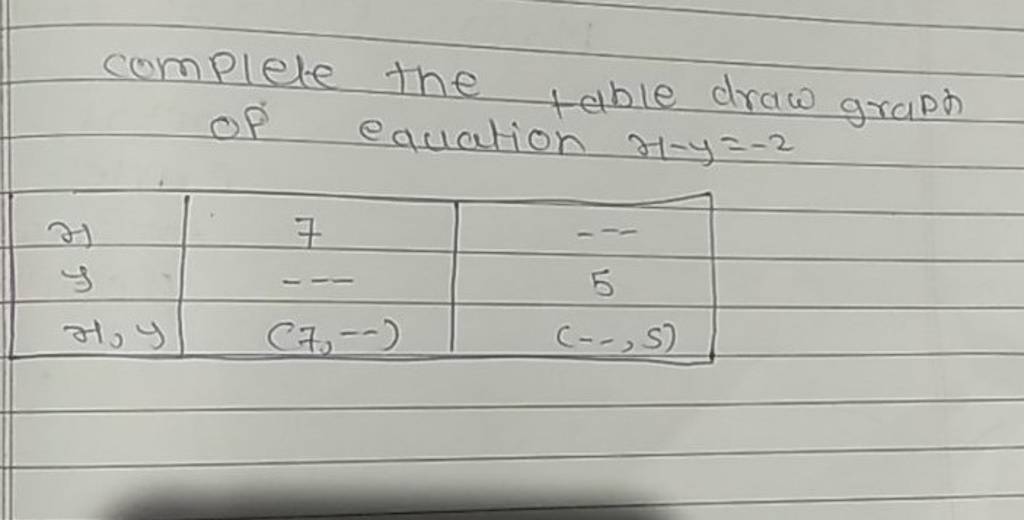 complete the table draw graph
of equation x-y=-2
x 7 ---
y --- 5
x, y (7, --) (--, 5)